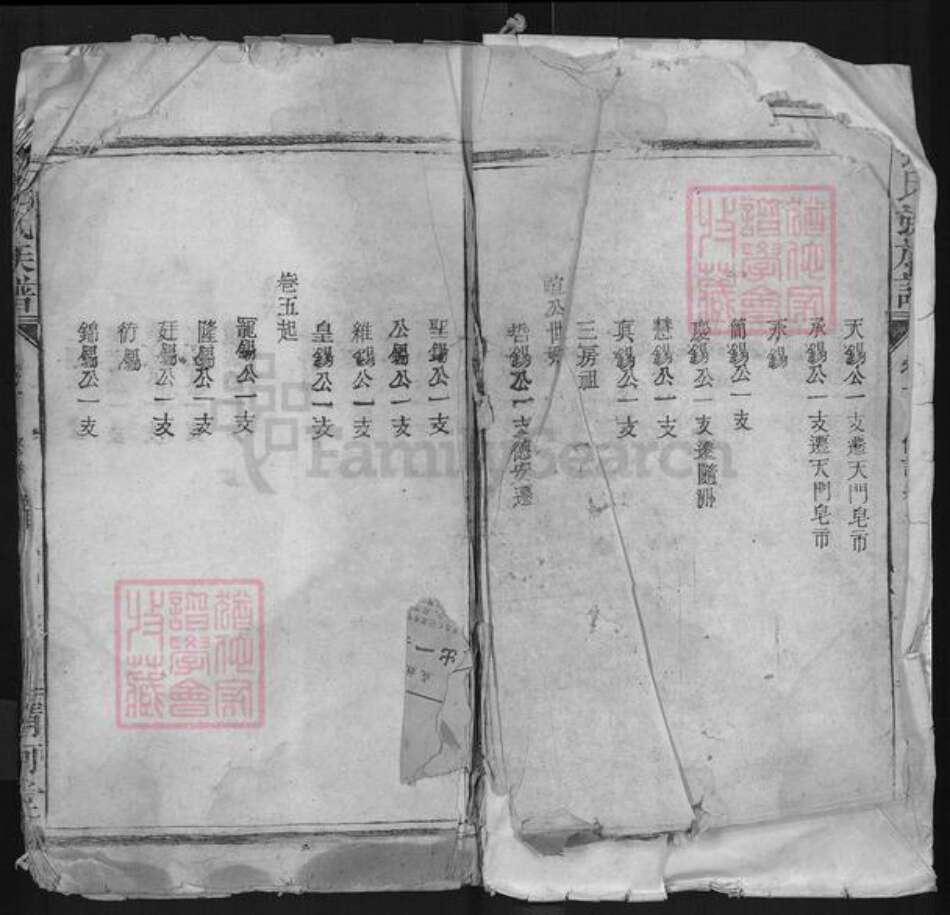 天錫公一支遷天門皂市
承錫公一支遷天門皂市
永錫
簡錫公一支
慶錫公一支遷隨州
慧錫公一支
真錫公一支
三房祖
公世
哲錫公一支德安遷
聖錫公一支
公錫公一支
維錫公一支
皇錫公一支
卷五起
龍錫公一支
隆錫公一支
廷錫公一支
衍錫
錦錫公一支
氏族譜
清河堂
FamilySearch